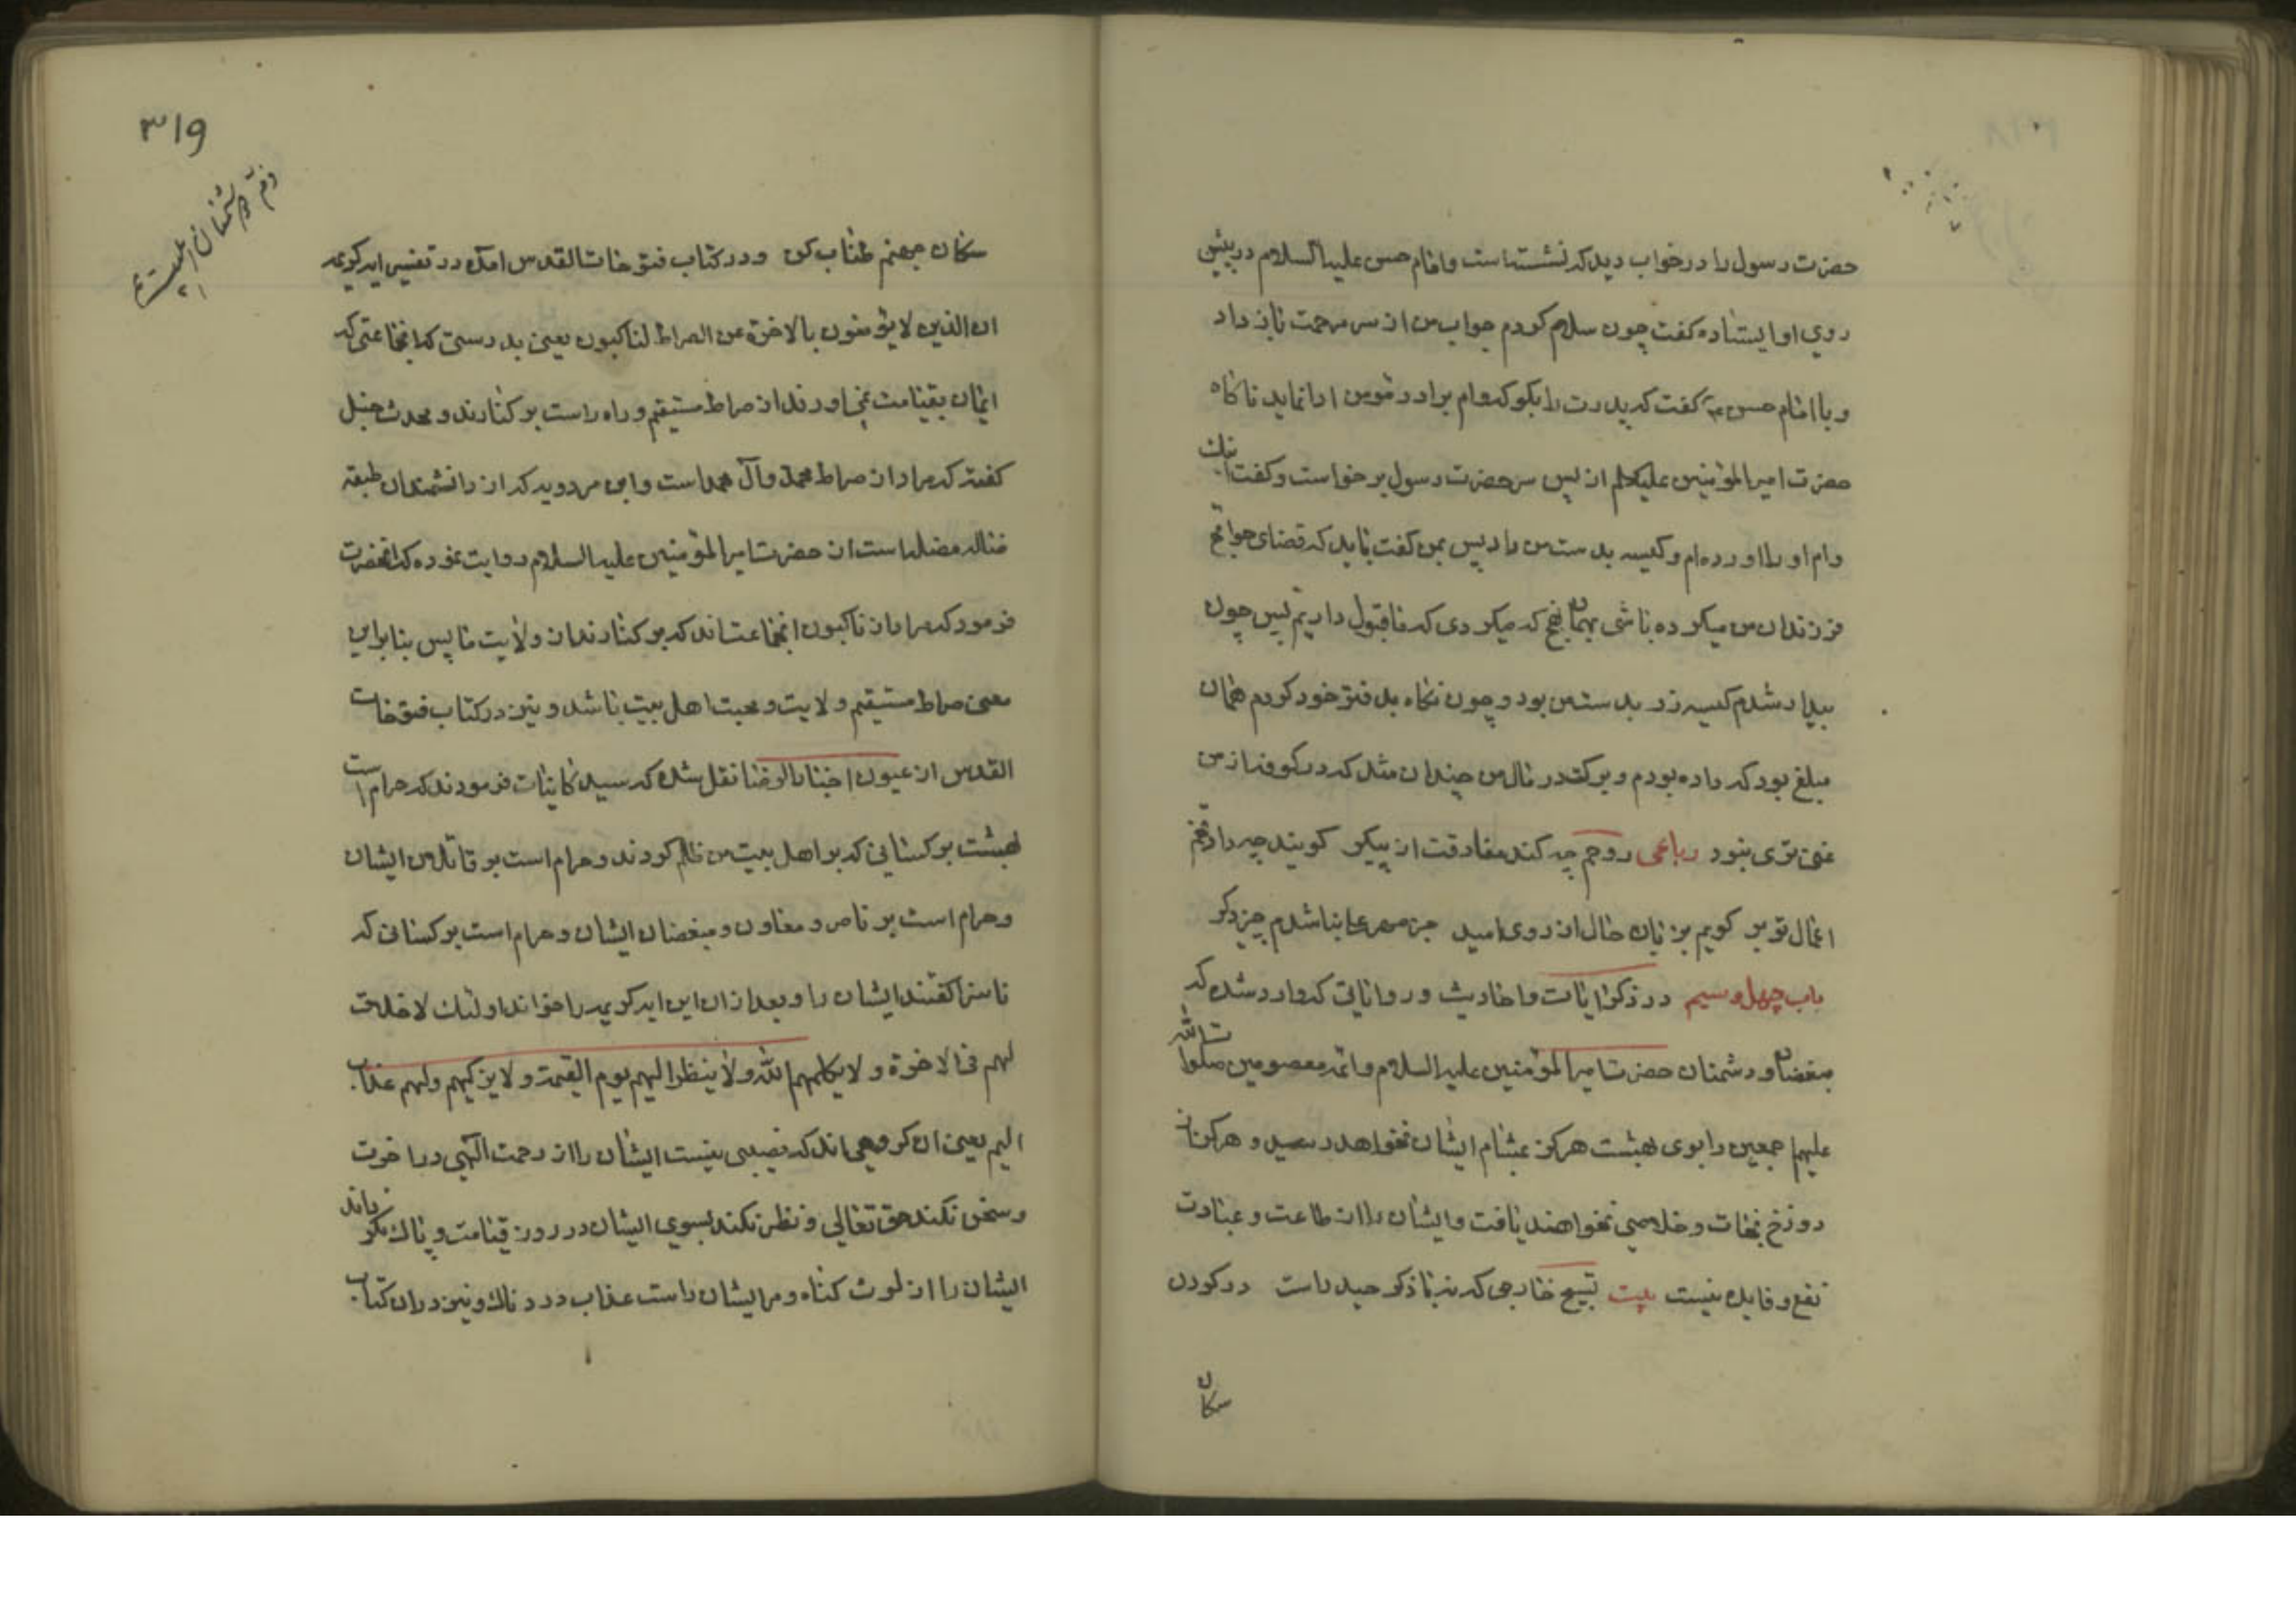 حضرت رسول را در خواب دید که نشسته است و امام حسن علیه السلام در پیش
روی او ایستاده گفت چون سلام کردم جواب من از سر مرحمت باز داد
و با امام حسن ع گفت که پدرت را بگو که وام برادر مومن ادا نماید ناگاه
حضرت امیر المؤمنین علیه السلام از پس سر حضرت رسول برخواست و گفت اینک
وام او را اورده ام و کیسه بدست من داد پس بمن گفت باید که قضای حوایج
فرزندان من میکرده باشی بهمان نهج که میکردی که ما قبول داریم پس چون
بیدار شدم کیسه زر بدست من بود و چون نگاه بدفتر خود کردم همان
مبلغ بود که داده بودم و برکت در مال من چندان شد که در کوفه از من
غنی تری نبود رباعی روحم چه کند مفارقت از پیکر گویند چه داد تخم
اعمال تو بر گویم بزبان حال از روی امید جز مهر علی نباشدم چیز دگر
باب چهل و سیم در ذکر ایات و احادیث و روایاتی که وارد شده که
مبغضان و دشمنان حضرت امیر المؤمنین علیه السلام و ائمه معصومین صلوات الله
علیهم اجمعین را بوی بهشت هرگز بمشام ایشان نخواهد رسید و هرگز از
دوزخ نجات و خلاصی نخواهند یافت و ایشان را از طاعت و عبادت
نفع و فایده نیست بیت تسبیح خارجی که نه با ذکر حیدر است در گردن
سکان
۳۱۹
ذم دشمنان اهلبیت ع
۲۱
سکان جهنم طناب کن و در کتاب فتوحات القدس امده در تفسیر ایه کریمه
ان الذین لا یؤمنون بالاخرة عن الصراط لناکبون یعنی بدرستی که انجماعتی که
ایمان بقیامت نمی اورند از صراط مستقیم و راه راست بر کنارند و محدث حنبل
گفته که مراد از صراط محمد و آل محمد است و ابن مردویه که از دانشمندان طبقه
ضاله مضله است از حضرت امیر المؤمنین علیه السلام روایت نموده که انحضرت
فرمود که مراد از ناکبون انجماعت اند که بر کنارند از ولایت ما پس بنابراین
معنی صراط مستقیم ولایت و محبت اهل بیت باشد و نیز در کتاب فتوحات
القدس از عیون اخبار الرضا نقل شده که سید کاینات فرمودند که حرام است
بهشت بر کسانی که بر اهل بیت من ظلم کردند و حرام است بر قاتلان ایشان
و حرام است بر ناصر و معاون و مبغضان ایشان و حرام است بر کسانی که
ناسزا گفتند ایشان را و بعد از ان این ایه کریمه را خواند اولئک لا خلاق
لهم فی الاخرة و لا یکلمهم الله و لا ینظر الیهم یوم القیمة و لا یزکیهم و لهم عذاب
الیم یعنی ان گروهی اند که نصیبی نیست ایشان را از رحمت الهی در اخرت
و سخن نکند حق تعالی و نظر نکند بسوی ایشان در روز قیامت و پاک نگرداند
ایشان را از لوث گناه و مر ایشان راست عذاب دردناک و نیز در ان کتاب